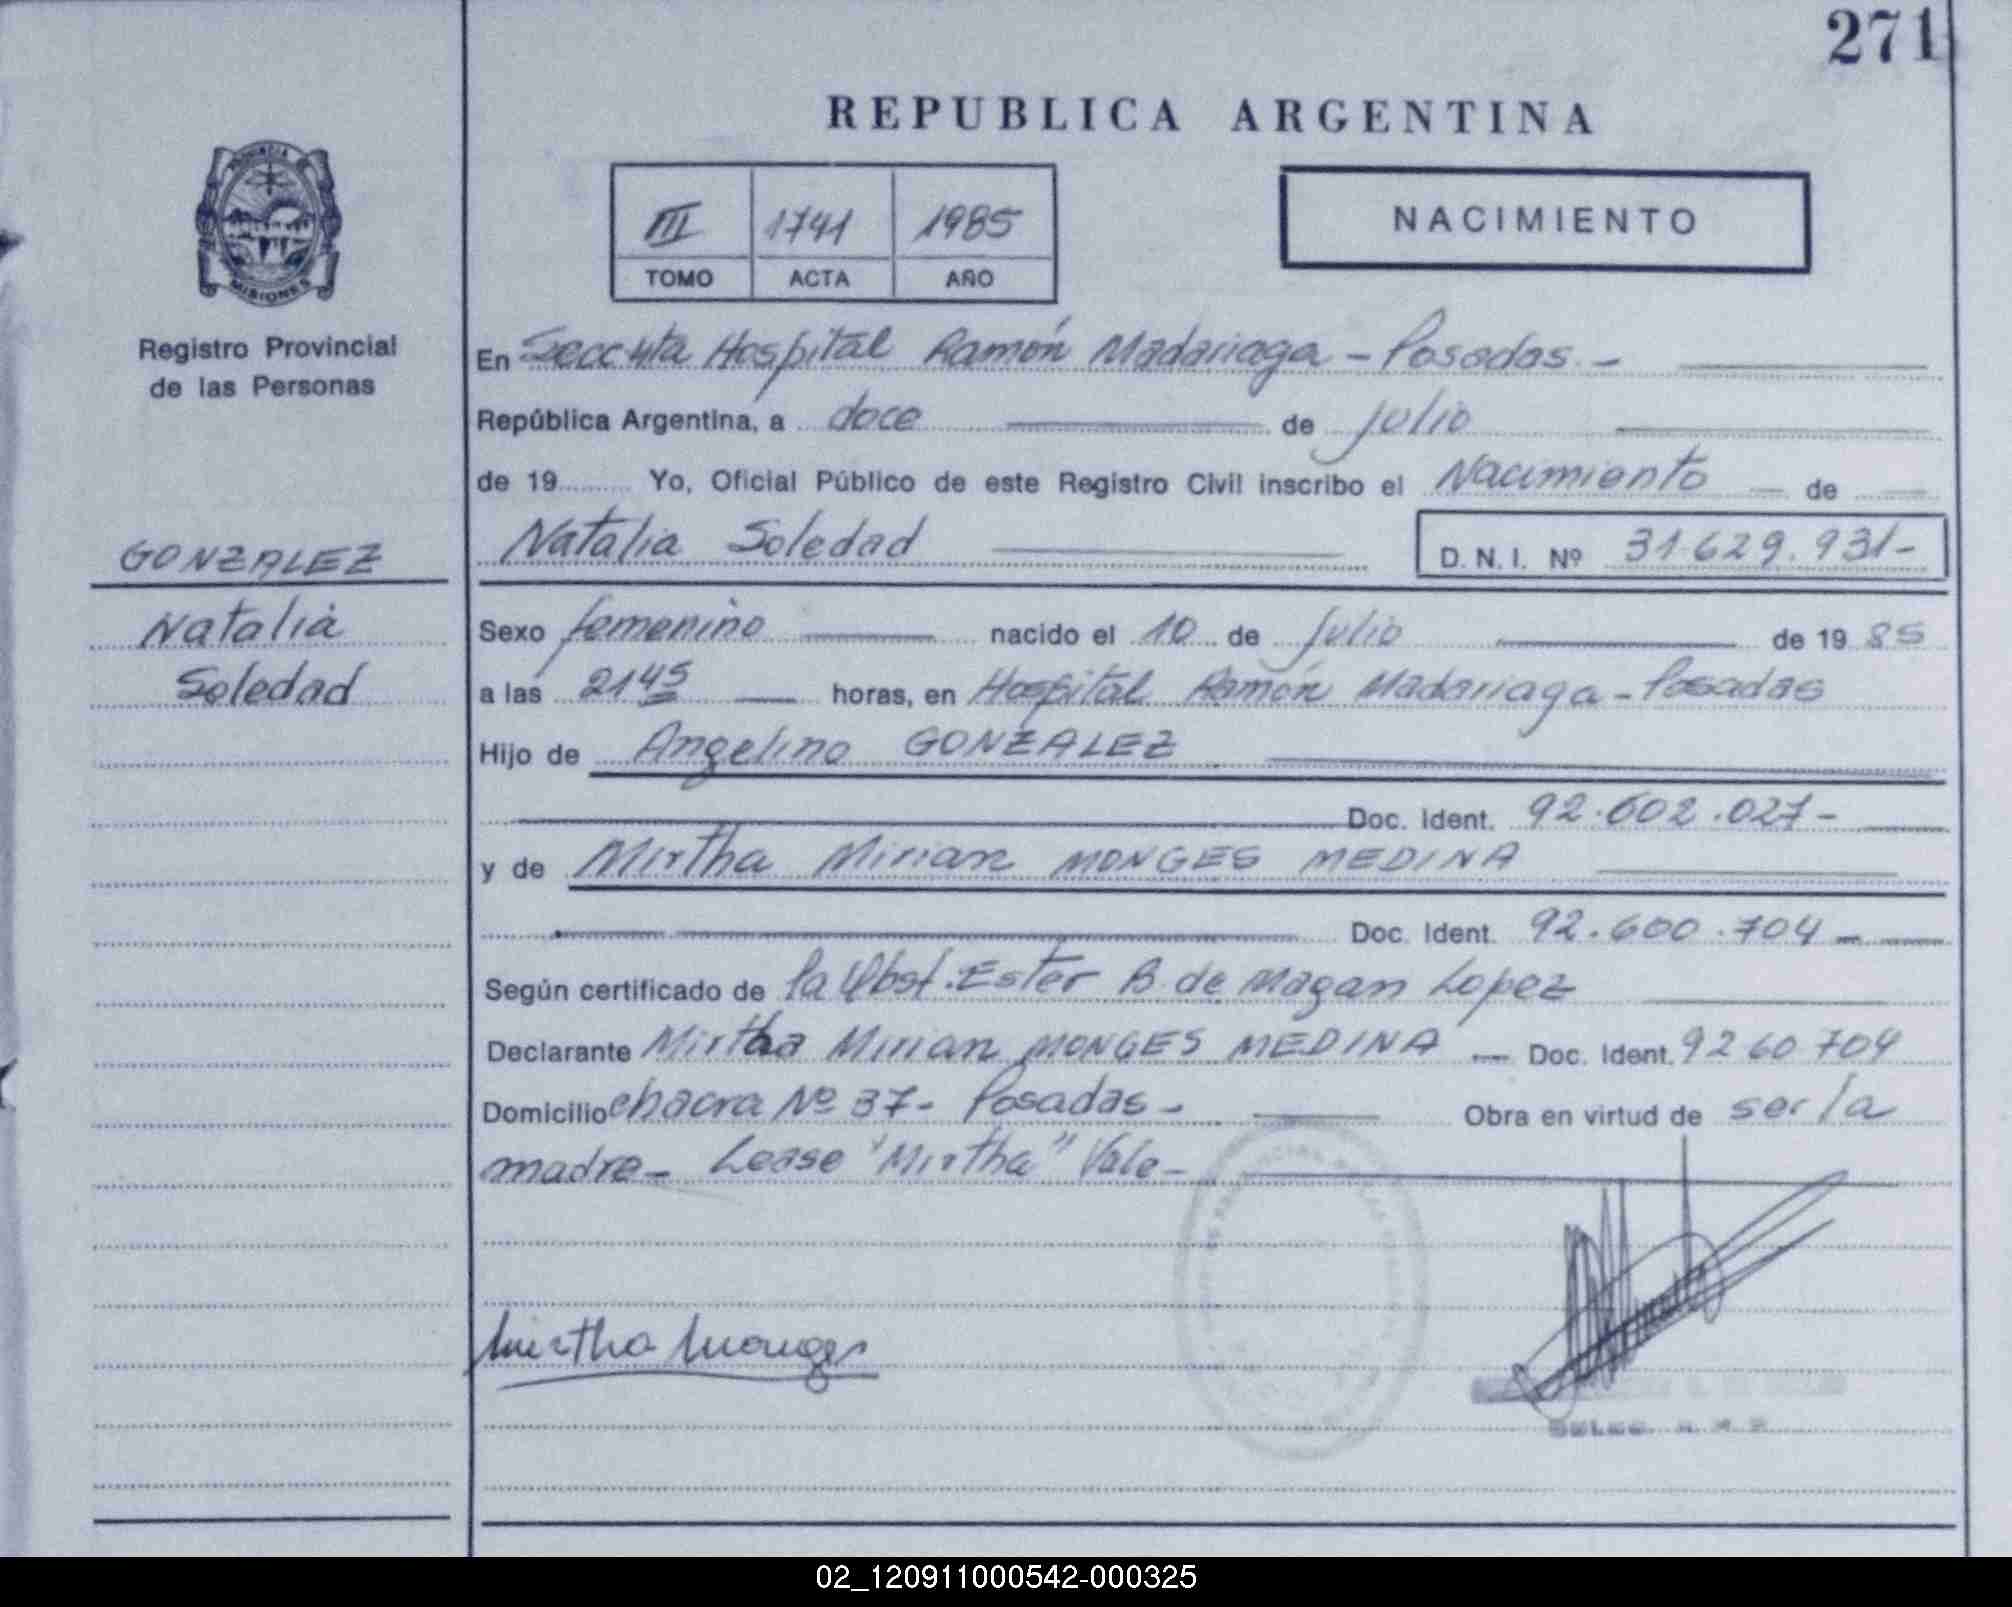 271
REPUBLICA ARGENTINA
PROVINCIA DE
MISIONES
III 1741 1985
TOMO ACTA AÑO
NACIMIENTO
Registro Provincial
de las Personas
En Secc 4ta Hospital Ramón Madariaga - Posadas. -
República Argentina, a doce de julio
de 19 Yo, Oficial Público de este Registro Civil inscribo el Nacimiento de
GONZALEZ
Natalia Soledad
D. N. I. Nº 31.629.931-
Natalia
Soledad
Sexo femenino nacido el 10 de julio de 19 85
a las 21 45 horas, en Hospital Ramón Madariaga - Posadas
Hijo de Angelino GONZALEZ
Doc. Ident. 92.602.027-
y de Mirtha Mirian MONGES MEDINA
Doc. Ident. 92.600.704-
Según certificado de la Obst. Ester B de Magan Lopez
Declarante Mirtha Mirian MONGES MEDINA - Doc. Ident. 92 60 704
Domicilio chacra Nº 37- Posadas- Obra en virtud de ser la
madre- Lease "Mirtha" Vale-
Mirtha Monges
02_120911000542-000325